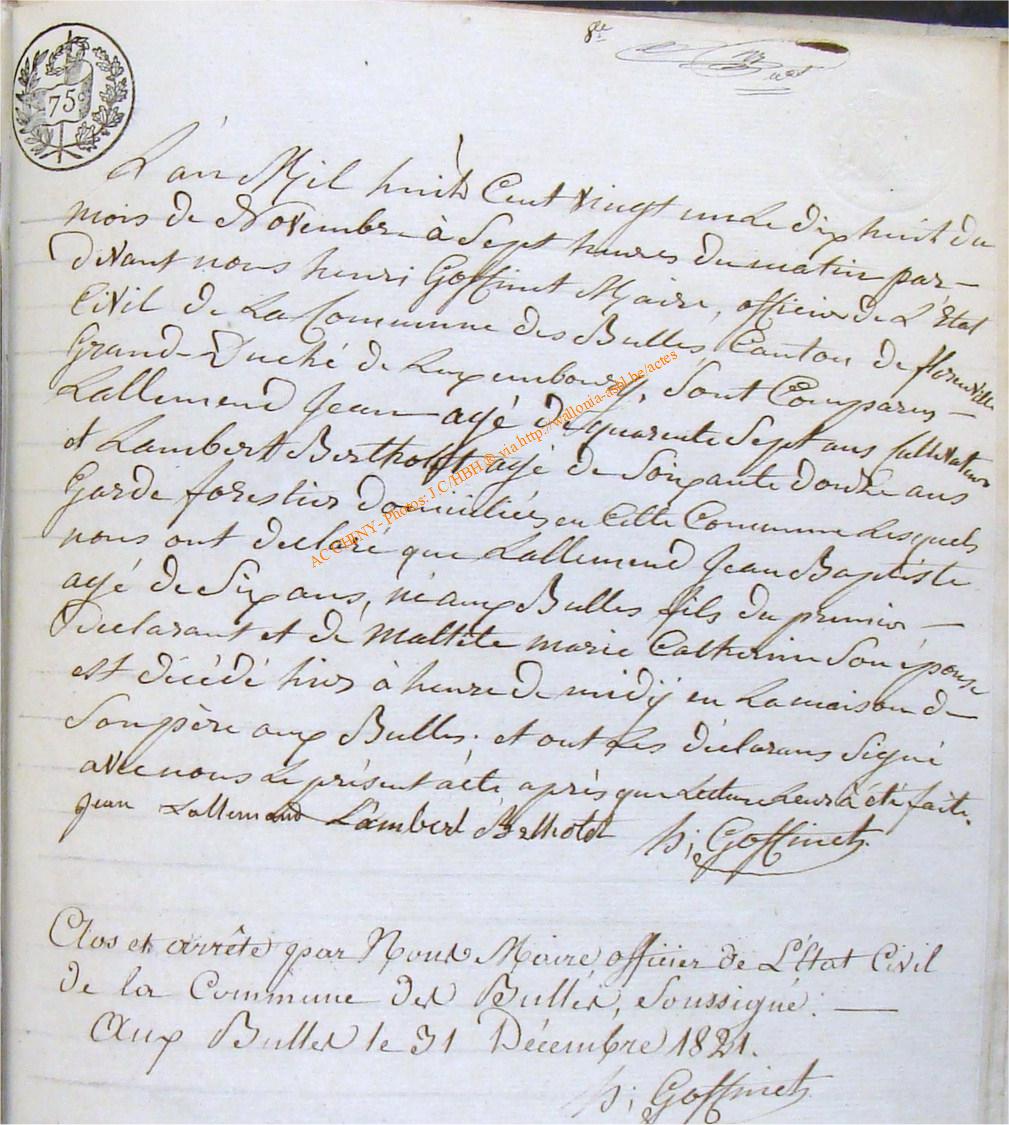 8e.
75
L'an Mil huit Cent vingt un Le dix huit du
mois de Novembre à Sept heures du matin par-
devant nous henri Goffinet Maire, officier de L'Etat
Civil de La Commune des Bulles, Canton de florenville
Grand-Duché de Luxembourg, Sont Comparus -
Lallemend Jean agé de quarente Sept ans
et Lambert Bertholet agé de Soixante douze ans
Garde forestier domiciliés en Cette Commune Lesquels
nous ont declaré que Lallemend Jean Baptiste
agé de Six ans, né aux Bulles fils du premier -
Déclarant et de Maltite marie Catherine Son épouse
est décédé hier à heure de midÿ en La maison de
Son père aux Bulles. et ont Les déclarans Signé
avec nous Le présent acte après que Lecture Leur à été faite.
Jean Lallemand Lambert Bertholet h; Goffinet.
Clos et arrêté par Nous Maire officier de L'Etat Civil
de la Commune des Bulles, Soussigné. —
Aux Bulles le 31 Décembre 1821.
h; Goffinet
AC CHINY - Photos: J C/HBH ® via http://wallonia-asbl.be/actes